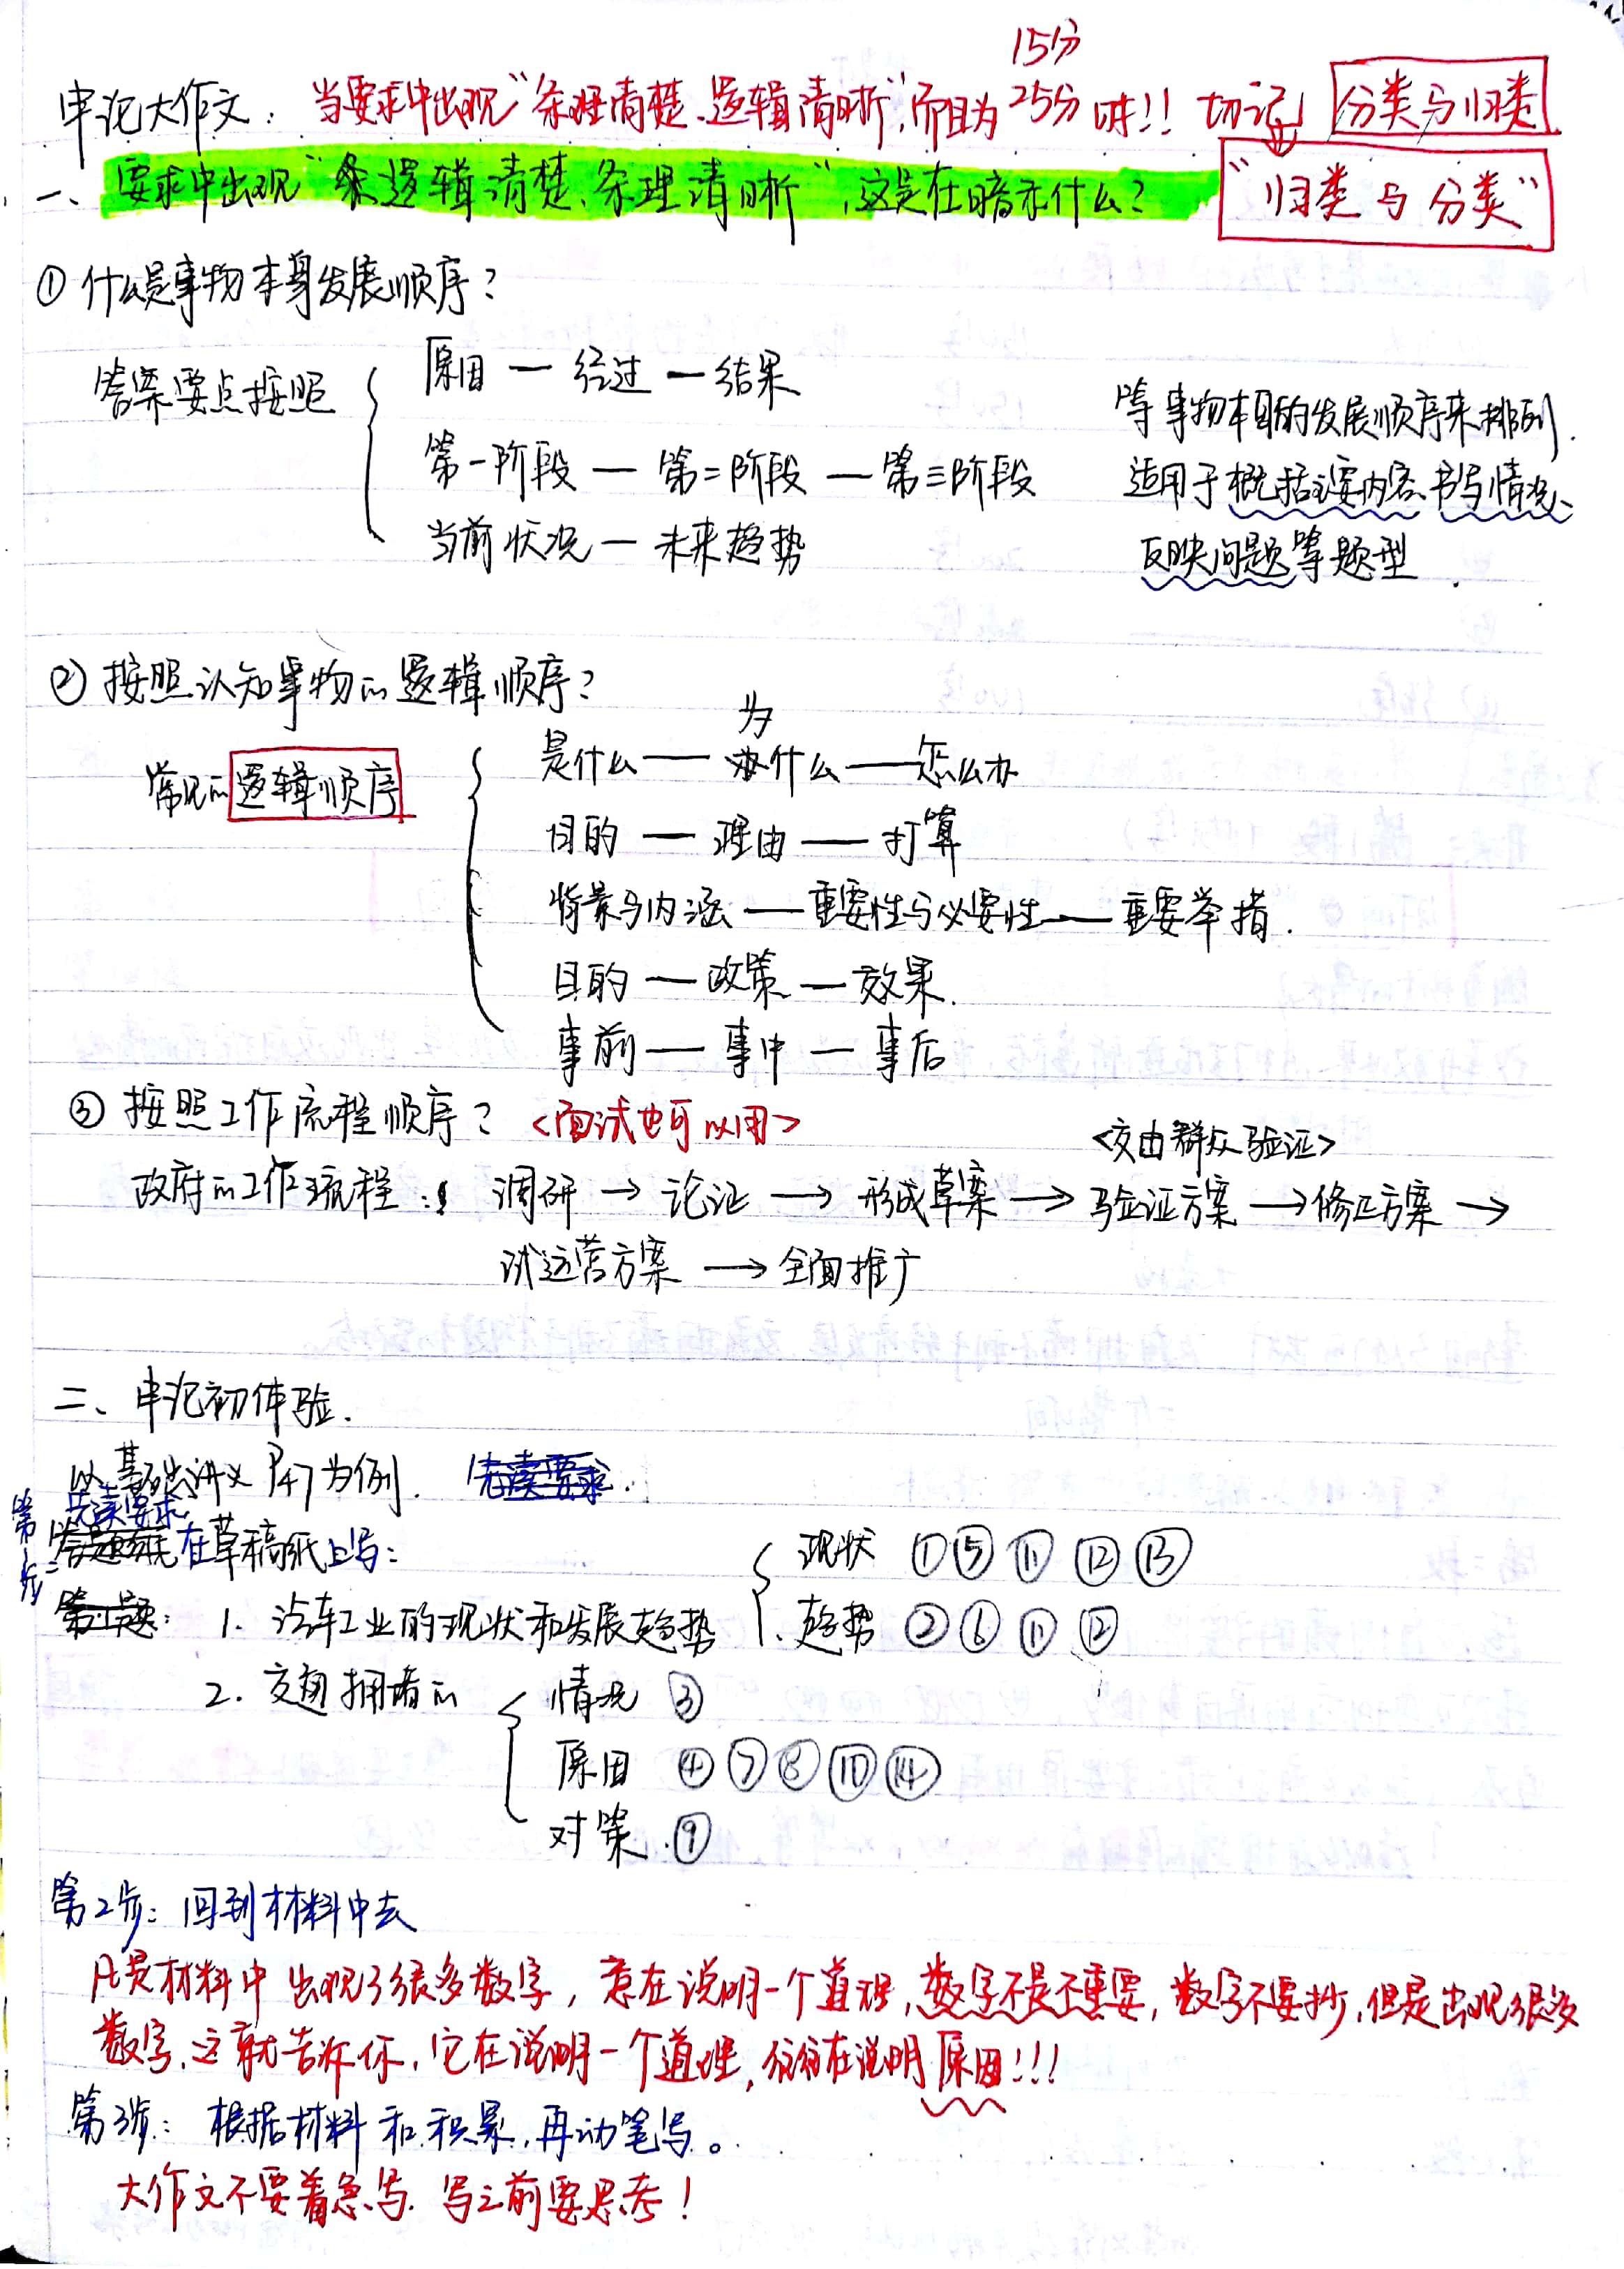 15分
申论大作文：当要求中出现“条理清楚、逻辑清晰”，而且为25分时！！切记 分类与归类
一、要求中出现“逻辑清楚、条理清晰”，这是在暗示什么？“归类与分类”
①什么是事物本身发展顺序？
答案要点按照
原因—经过—结果
第一阶段—第二阶段—第三阶段
当前状况—未来趋势
等事物本身的发展顺序来排列.
适用于概括主要内容、书写情况、
反映问题等题型.
②按照认知事物的逻辑顺序？
常见的逻辑顺序
是什么—为什么—怎么办
目的—理由—打算
背景与内涵—重要性与必要性—重要举措.
目的—政策—效果.
事前—事中—事后
③按照工作流程顺序？<面试也可以用>
<交由群众验证>
政府的工作流程：调研→论证→形成草案→验证方案→修正方案→
试运营方案→全面推广
二、申论初体验.
以基础讲义P47为例.
第1步：先读要求
在草稿纸上写：
1. 汽车工业的现状和发展趋势
现状 ①⑤⑪⑫⑬
趋势 ②⑥⑪⑫
2. 交通拥堵的
情况 ③
原因 ④⑦⑧⑩⑭
对策.⑨
第2步：回到材料中去
凡是材料中出现了很多数字，意在说明一个道理，数字不是不重要，数字不要抄，但是出现很多
数字，这就告诉你，它在说明一个道理，往往在说明原因！！！
第3步：根据材料和积累，再动笔写。
大作文不要着急写.写之前要思考！